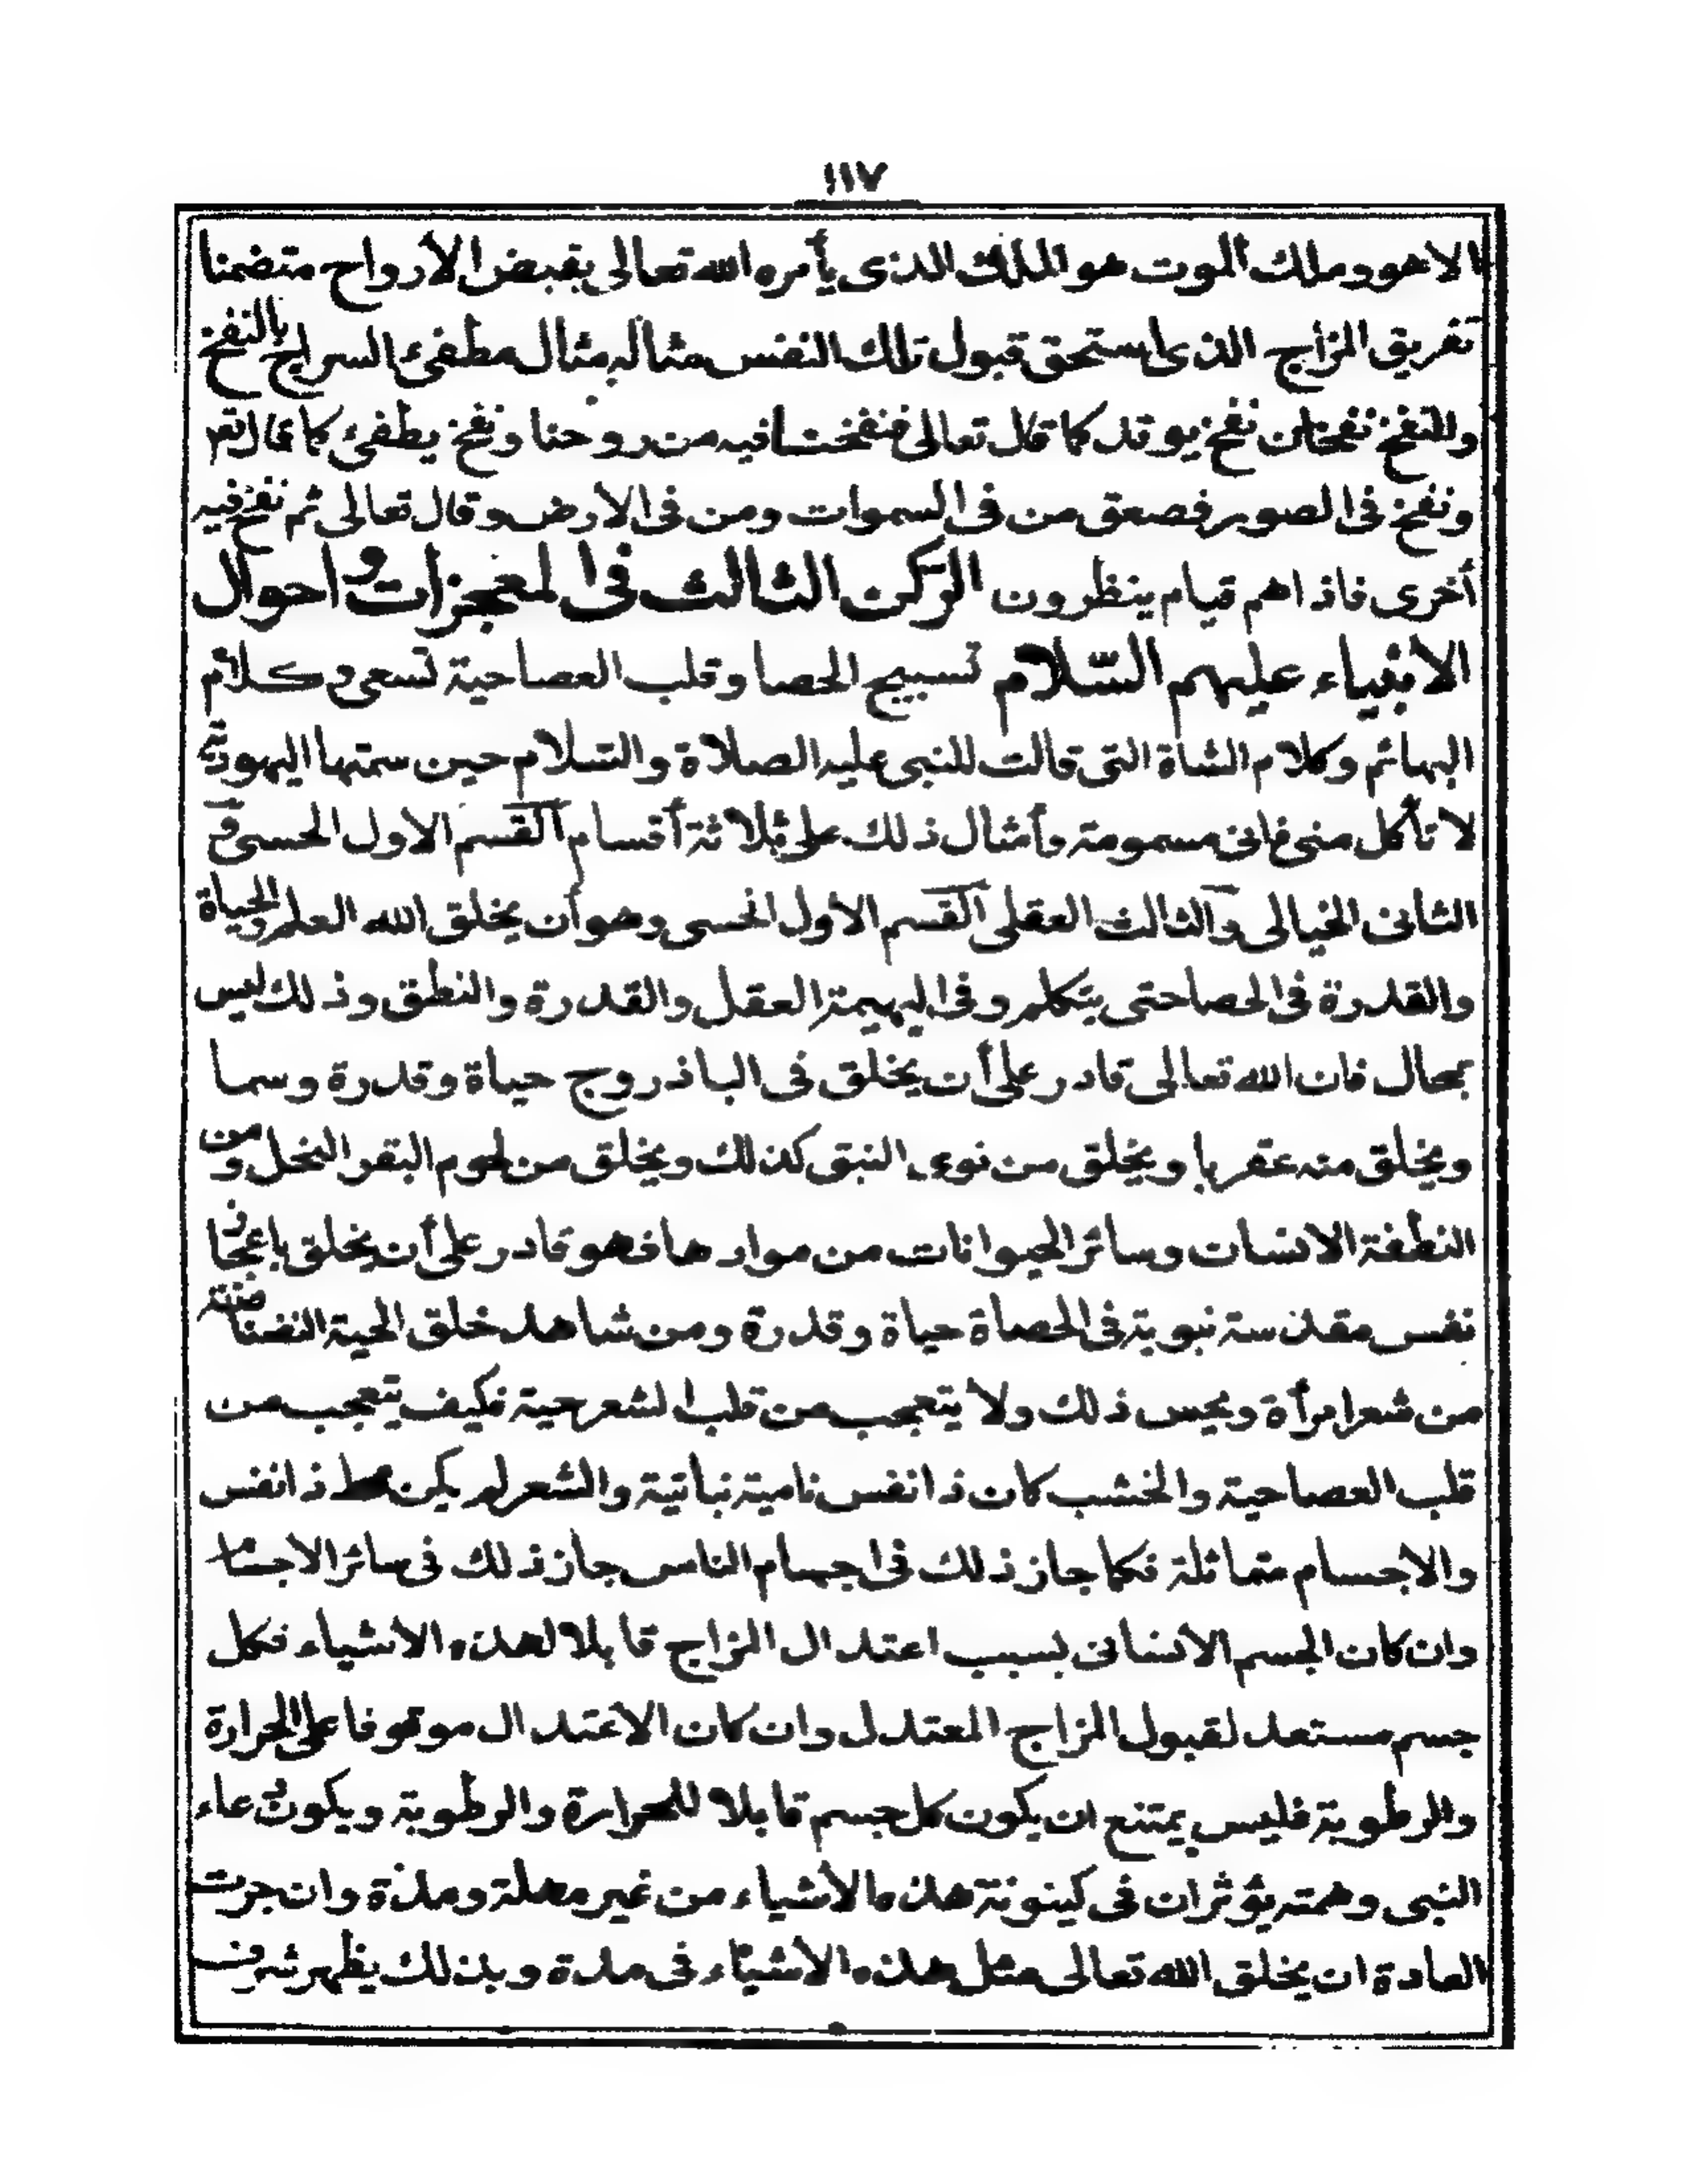 ١١٧
الا هو وملك الموت هو الملك الذى يأمره الله تعالى بقبض الأرواح متضمنا
تفريق المزاج الذى استحق قبول تلك النفس مثاله مثال مطفئ السراج بالنفخ
وللنفخ نفختان نفخ يوقد كما قال تعالى فنفخنا فيه من روحنا ونفخ يطفئ كما قال تعم
ونفخ فى الصور فصعق من فى السموات ومن فى الارض وقال تعالى ثم نفخ فيه
أخرى فاذا هم قيام ينظرون الركن الثالث فى المعجزات واحوال
الانبياء عليهم السّلام تسبيح الحصا وقلب العصا حية تسعى وكلام
البهائم وكلام الشاة التى قالت للنبى عليه الصلاة والسلام حين سمتها اليهودية
لا تأكل منى فانى مسمومة وأمثال ذلك على ثلاثة أقسام القسم الاول الحسى و
الثانى الخيالى والثالث العقلى القسم الاول الحسى وهو أن يخلق الله العلم والحياة
والقدرة فى الحصا حتى يتكلم وفى البهيمة العقل والقدرة والنطق وذلك ليس
بمحال فان الله تعالى قادر على أن يخلق فى الباذروج حياة وقدرة وسما
ويخلق منه عقربا ويخلق من نوى النبق كذلك ويخلق من لحوم البقر النحل ومن
النطفة الانسان وسائر الحيوانات من موادها فهو قادر على أن يخلق باعجاز
نفس مقدسة نبوية فى الحصاة حياة وقدرة ومن شاهد خلق الحية النضناضة
من شعر امرأة ويحس ذلك ولا يتعجب من قلب الشعر حية فكيف يتعجب من
قلب العصا حية والخشب كان ذا نفس نامية نباتية والشعر لم يكن قط ذا نفس
والاجسام متماثلة فكما جاز ذلك فى اجسام الناس جاز ذلك فى سائر الاجسام
وان كان الجسم الانسانى بسبب اعتدال المزاج قابلا لهذه الاشياء فكل
جسم مستعد لقبول المزاج المعتدل وان كان الاعتدال موقوفا على الحرارة
والرطوبة فليس يمتنع ان يكون كل جسم قابلا للحرارة والرطوبة ويكون دعاء
النبى وهمته يؤثران فى كينونة هذه الأشياء من غير مهلة ومدة وان جرت
العادة ان يخلق الله تعالى مثل هذه الأشياء فى مدة وبذلك يظهر شرف